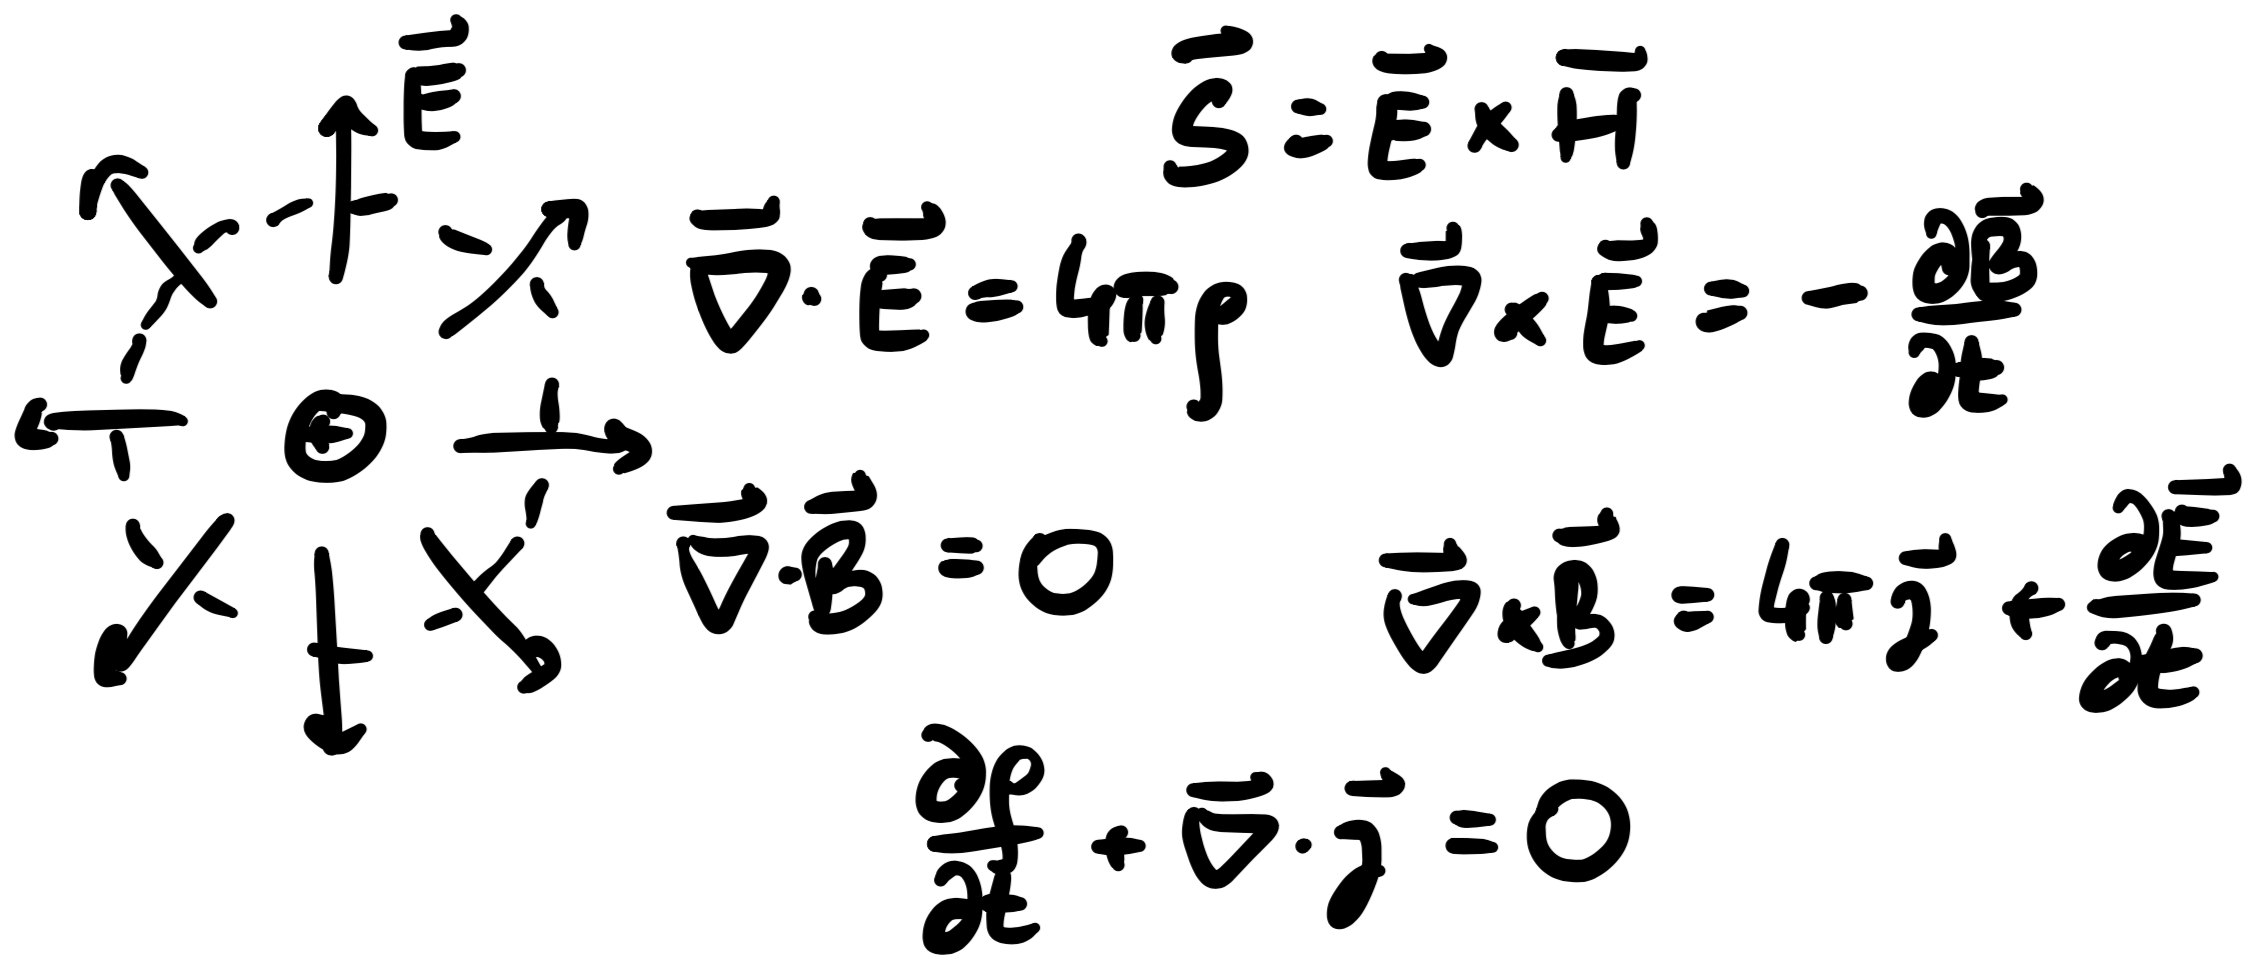 E⃗
S⃗ = E⃗ × H⃗
∇⃗ · E⃗ = 4πρ
∇⃗ × E⃗ = - ∂B⃗/∂t
+
∇⃗ · B⃗ = 0
∇⃗ × B⃗ = 4πj⃗ + ∂E⃗/∂t
∂ρ/∂t + ∇⃗ · j⃗ = 0